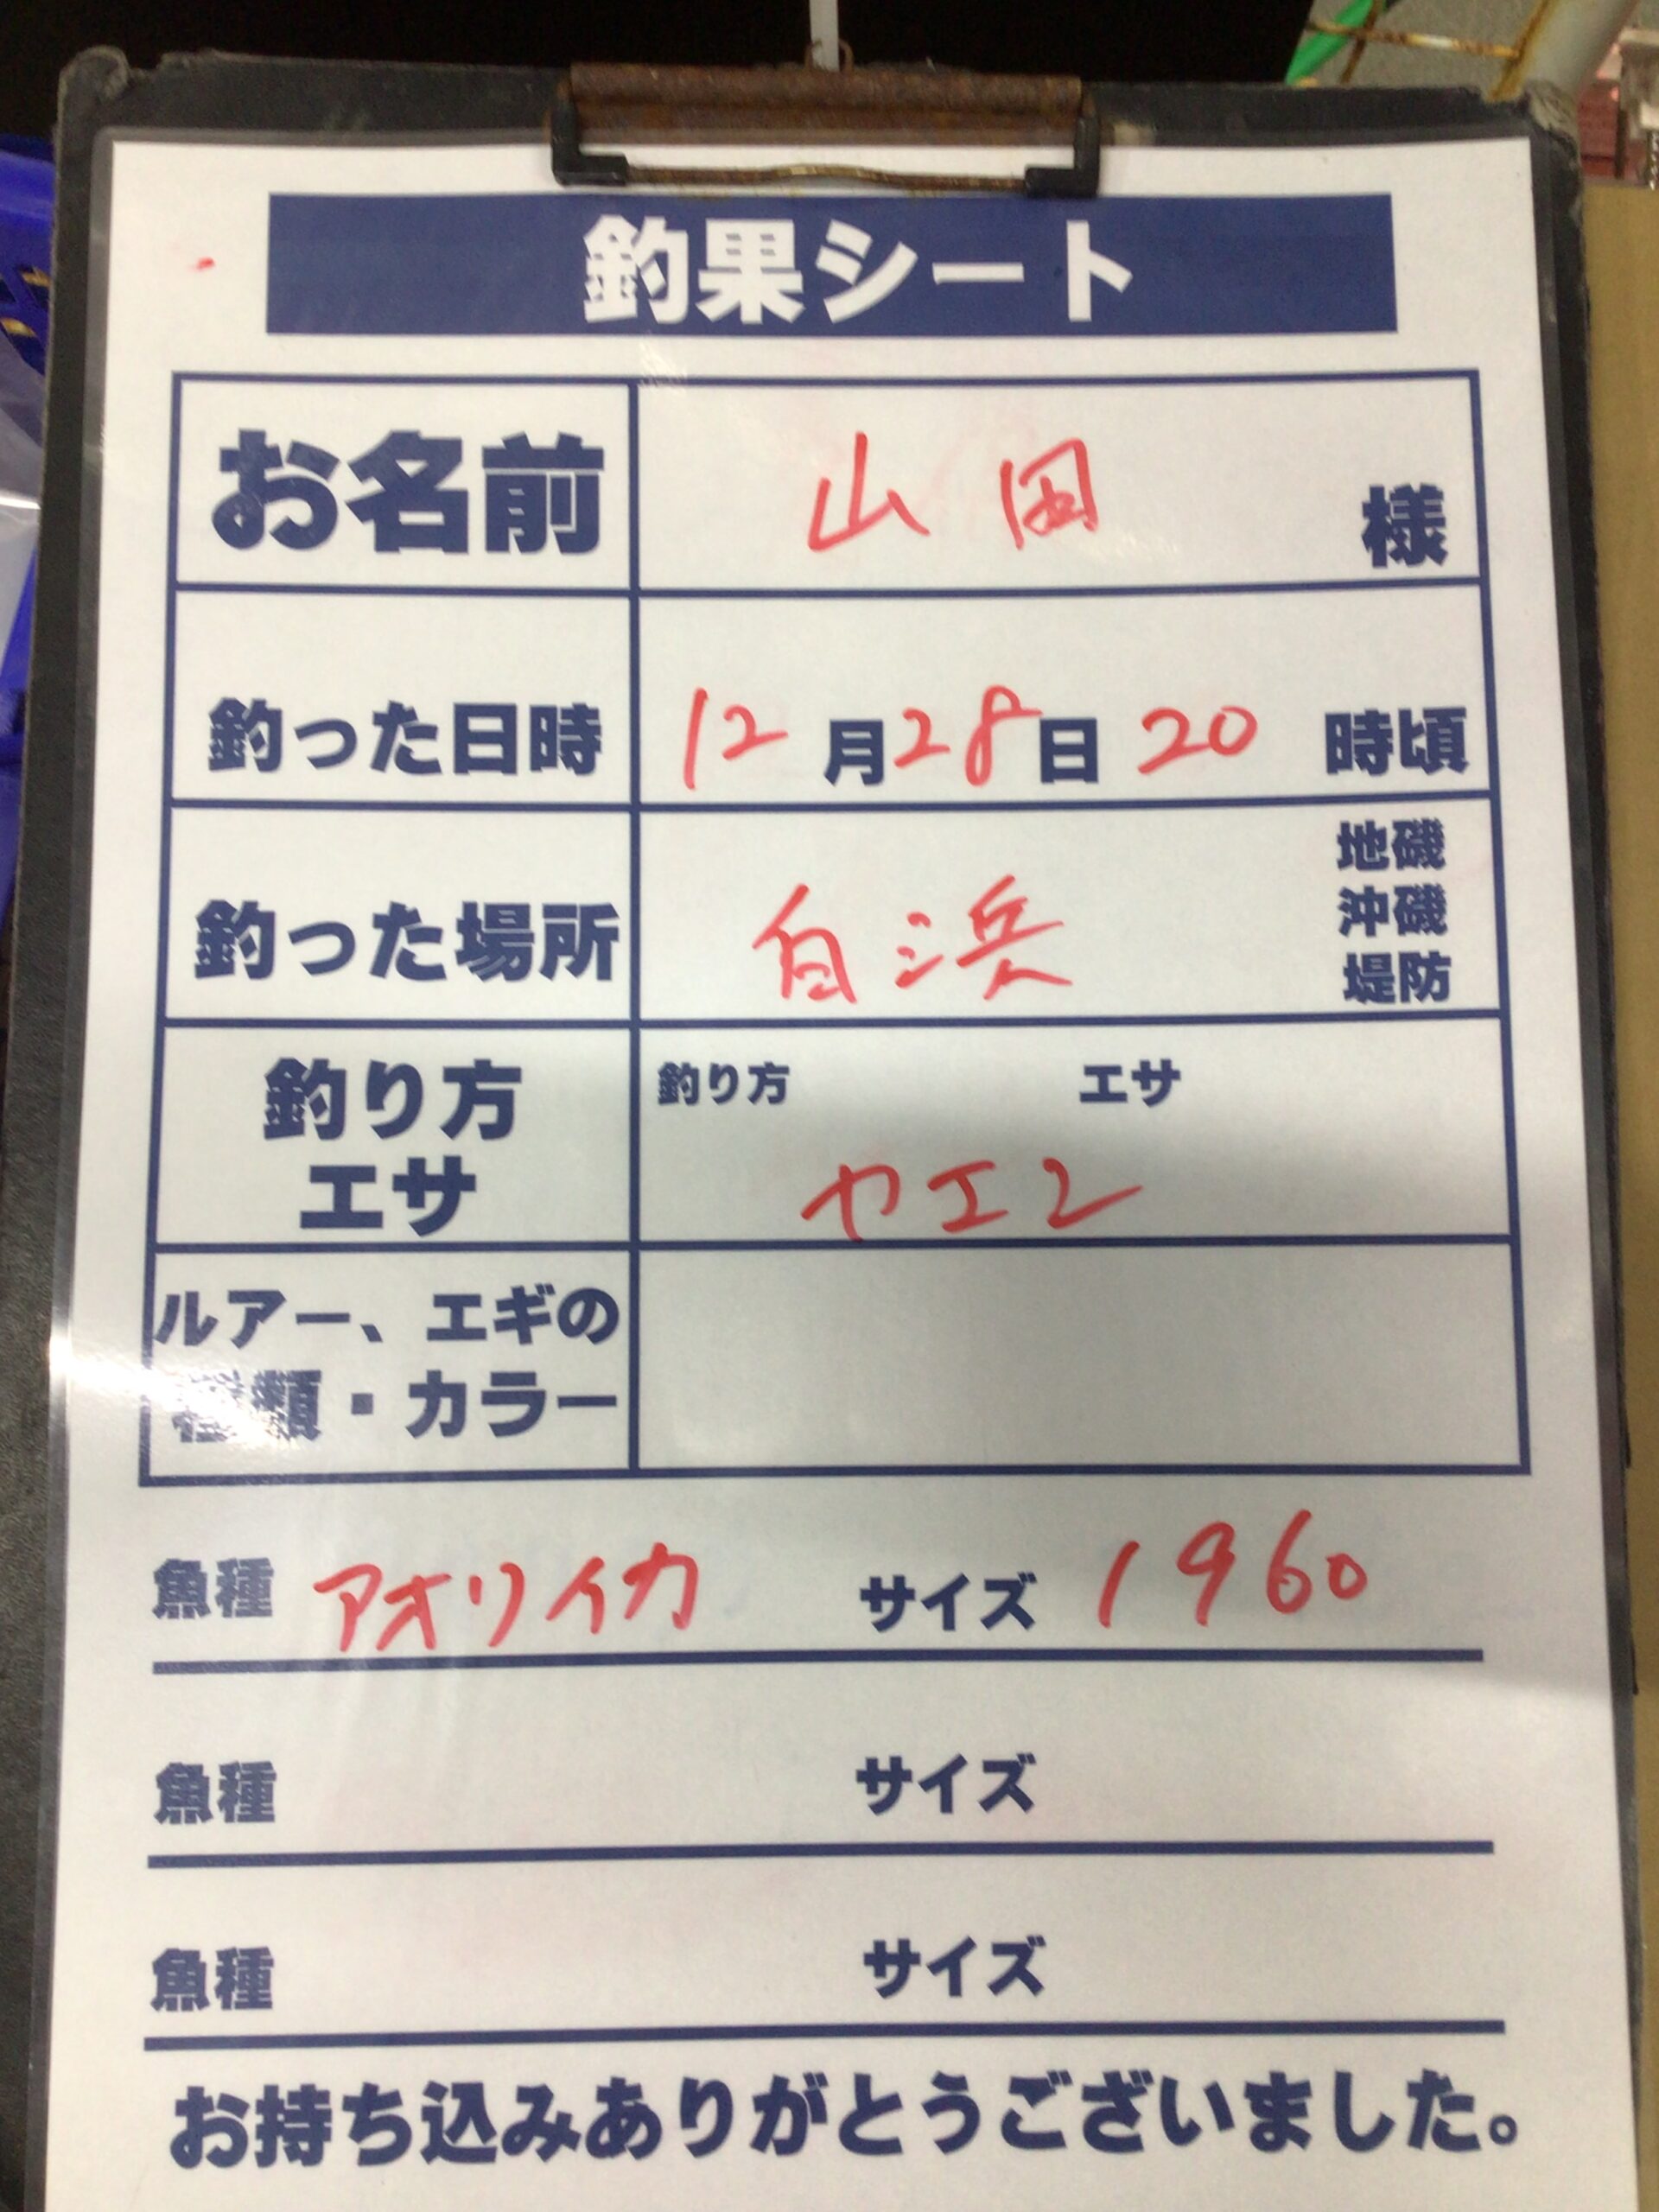 釣果シート
お名前 山田 様
釣った日時 12月28日20時頃
釣った場所 白浜 地磯 沖磯 堤防
釣り方 エサ
釣り方 エサ
ヤエン
ルアー、エギの
種類・カラー
魚種 アオリイカ サイズ 1960
魚種 サイズ
魚種 サイズ
お持ち込みありがとうございました。